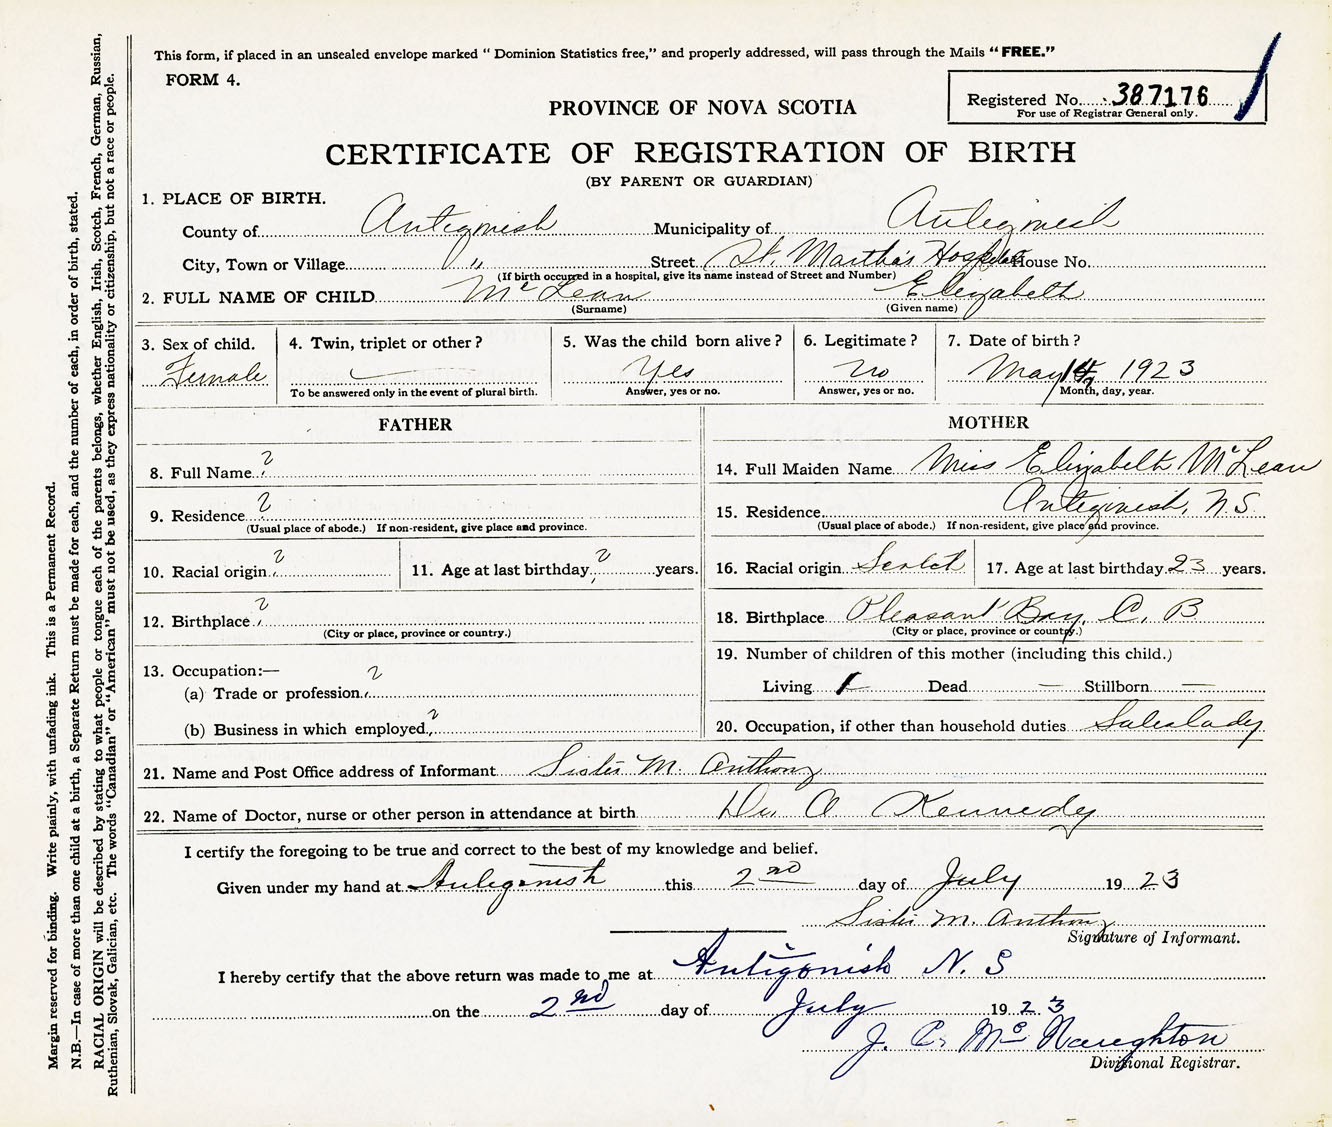 This form, if placed in an unsealed envelope marked " Dominion Statistics free," and properly addressed, will pass through the Mails "FREE."
FORM 4.
Registered No. 387176
For use of Registrar General only.
PROVINCE OF NOVA SCOTIA
CERTIFICATE OF REGISTRATION OF BIRTH
(BY PARENT OR GUARDIAN)
1. PLACE OF BIRTH.
County of Antigonish Municipality of Antigonish
City, Town or Village " Street St. Martha's Hospital House No.
(If birth occurred in a hospital, give its name instead of Street and Number)
2. FULL NAME OF CHILD McLean Elizabeth
(Surname) (Given name)
3. Sex of child. 4. Twin, triplet or other? 5. Was the child born alive? 6. Legitimate? 7. Date of birth?
Female — Yes No May 14, 1923
To be answered only in the event of plural birth. Answer, yes or no. Answer, yes or no. Month, day, year.
FATHER
8. Full Name ?
9. Residence ?
(Usual place of abode.) If non-resident, give place and province.
10. Racial origin ? 11. Age at last birthday ? years.
12. Birthplace ?
(City or place, province or country.)
13. Occupation:—
(a) Trade or profession ?
(b) Business in which employed ?
MOTHER
14. Full Maiden Name Miss Elizabeth McLean
15. Residence Antigonish, N.S.
(Usual place of abode.) If non-resident, give place and province.
16. Racial origin Scotch 17. Age at last birthday 23 years.
18. Birthplace Pleasant Bay, C. B
(City or place, province or country.)
19. Number of children of this mother (including this child.)
Living 1 Dead — Stillborn —
20. Occupation, if other than household duties Saleslady
21. Name and Post Office address of Informant Sister M. Anthony
22. Name of Doctor, nurse or other person in attendance at birth Dr. Kennedy
I certify the foregoing to be true and correct to the best of my knowledge and belief.
Given under my hand at Antigonish this 2nd day of July 1923
Sister M. Anthony
Signature of Informant.
I hereby certify that the above return was made to me at Antigonish N. S
on the 2nd day of July 1923
J. C. McNaughton
Divisional Registrar.
Margin reserved for binding. Write plainly, with unfading ink. This is a Permanent Record.
N.B.—In case of more than one child at a birth, a Separate Return must be made for each, and the number of each, in order of birth, stated.
RACIAL ORIGIN will be described by stating to what people or tongue each of the parents belongs, whether English, Irish, Scotch, French, German, Russian,
Ruthenian, Slovak, Galician, etc. The words "Canadian" or "American" must not be used, as they express nationality or citizenship, but not a race or people.